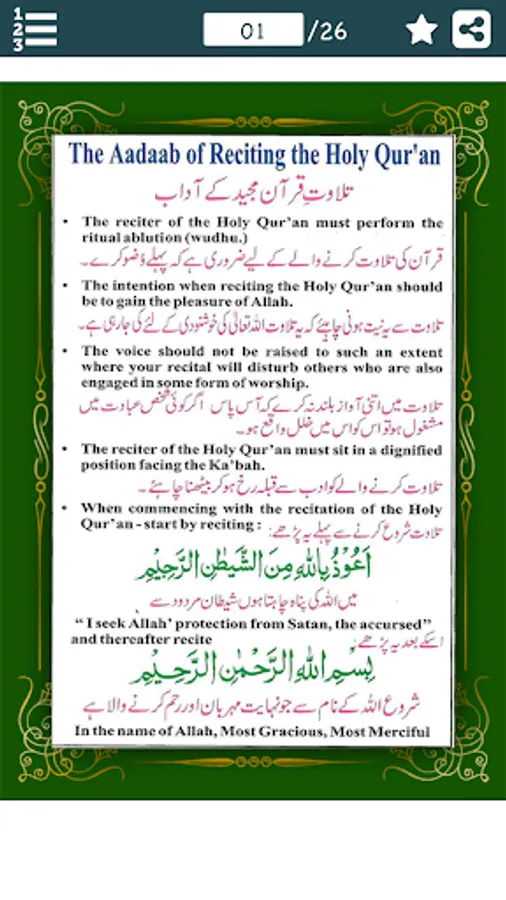 1
2
3
01 /26
The Aadaab of Reciting the Holy Qur'an
تلاوتِ قرآن مجید کے آداب
• The reciter of the Holy Qur'an must perform the
ritual ablution (wudhu.)
قرآن کی تلاوت کرنے والے کے لیے ضروری ہے کہ پہلے وُضو کرے۔
• The intention when reciting the Holy Qur'an should
be to gain the pleasure of Allah.
تلاوت سے یہ نیت ہونی چاہئے کہ یہ تلاوت اللہ تعالیٰ کی خوشنودی کے لئے کی جارہی ہے۔
• The voice should not be raised to such an extent
where your recital will disturb others who are also
engaged in some form of worship.
تلاوت میں اتنی آواز بلند نہ کرے کہ آس پاس اگر کوئی شخص عبادت میں
مشغول ہو تو اس کو اس میں خلل واقع ہو۔
• The reciter of the Holy Qur'an must sit in a dignified
position facing the Ka'bah.
تلاوت کرنے والے کو ادب سے قبلہ رخ ہو کر بیٹھنا چاہئے۔
• When commencing with the recitation of the Holy
Qur'an - start by reciting : تلاوت شروع کرنے سے پہلے یہ پڑھے:
اَعُوْذُ بِاللّٰهِ مِنَ الشَّيْطٰنِ الرَّجِيْمِ
میں اللہ کی پناہ چاہتا ہوں شیطان مردود سے
“ I seek Allah’ protection from Satan, the accursed”
and thereafter recite اسکے بعد یہ پڑھے:
بِسْمِ اللّٰهِ الرَّحْمٰنِ الرَّحِيْمِ
شروع اللہ کے نام سے جو نہایت مہربان اور رحم کرنے والا ہے
In the name of Allah, Most Gracious, Most Merciful